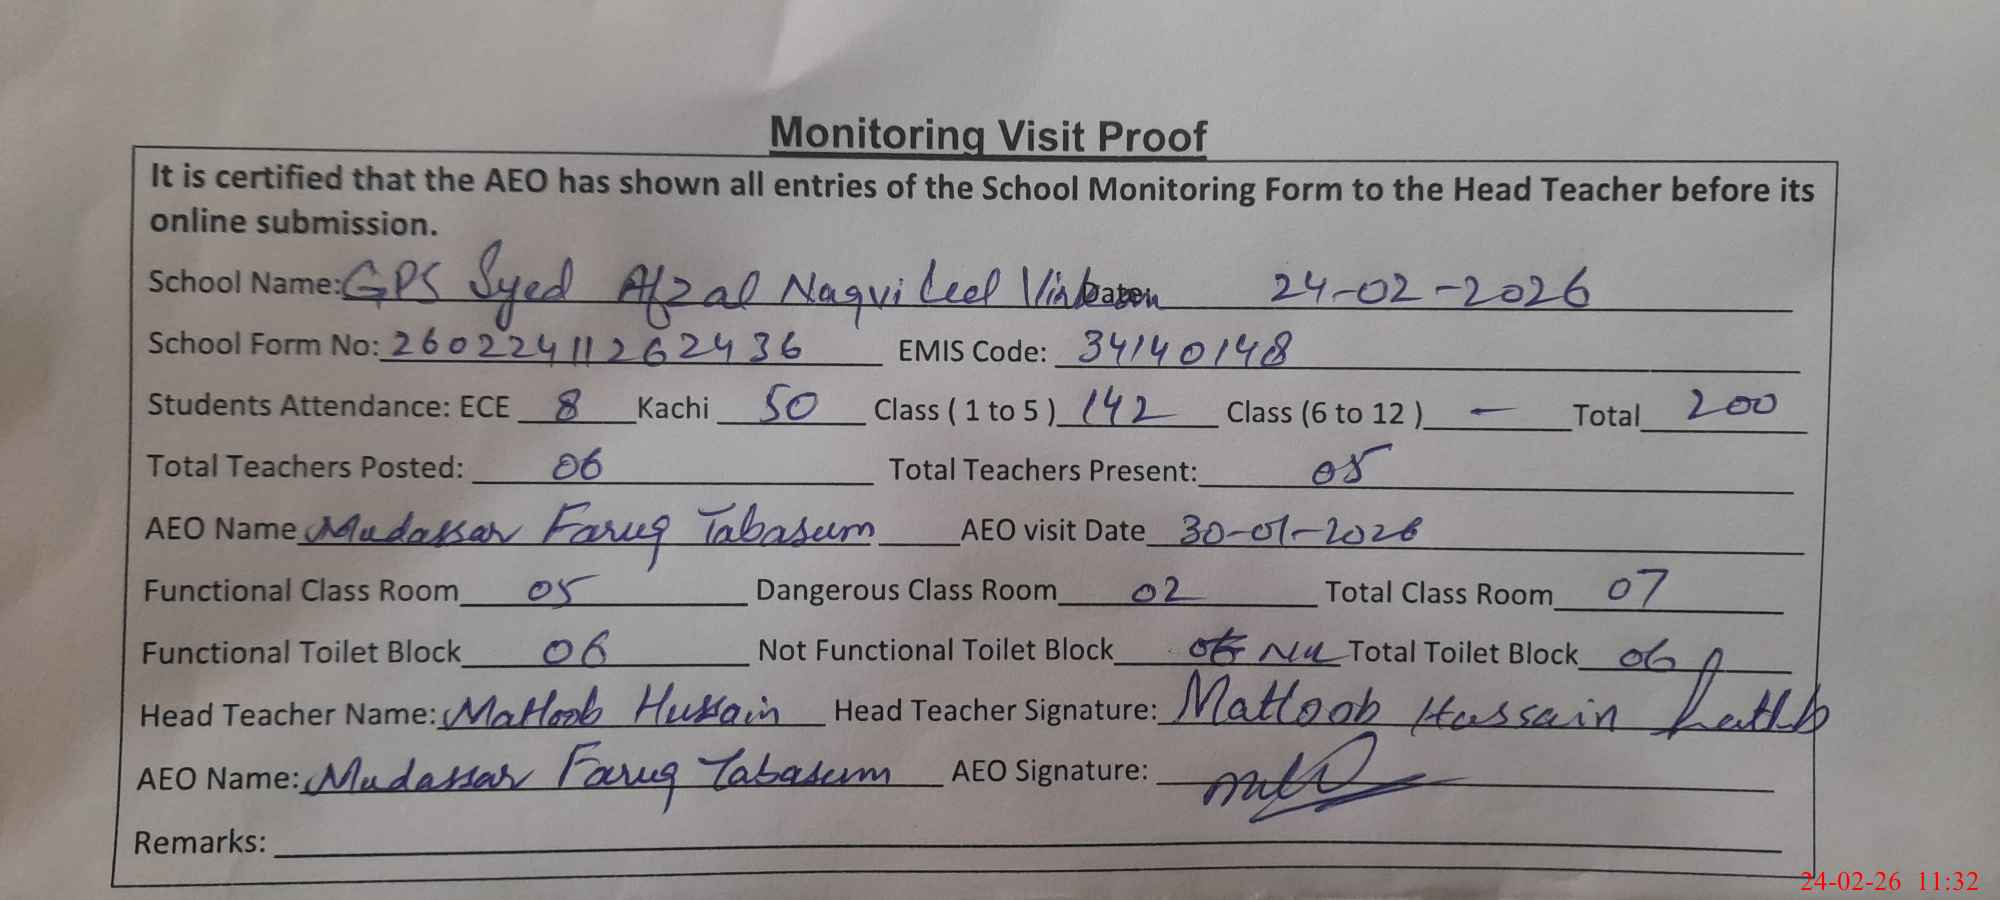 Monitoring Visit Proof
It is certified that the AEO has shown all entries of the School Monitoring Form to the Head Teacher before its
online submission.
School Name: GPS Syed Afzal Naqvi Date 24-02-2026
School Form No: 26022411262436 EMIS Code: 34140148
Students Attendance: ECE 8 Kachi 50 Class ( 1 to 5 ) 142 Class (6 to 12 ) — Total 200
Total Teachers Posted: 06 Total Teachers Present: 05
AEO Name Mudassar Faruq Tabasum AEO visit Date 30-01-2026
Functional Class Room 05 Dangerous Class Room 02 Total Class Room 07
Functional Toilet Block 06 Not Functional Toilet Block Nil Total Toilet Block 06
Head Teacher Name: Matloob Hussain Head Teacher Signature: Matloob Hussain
AEO Name: Mudassar Faruq Tabasum AEO Signature:
Remarks:
24-02-26 11:32